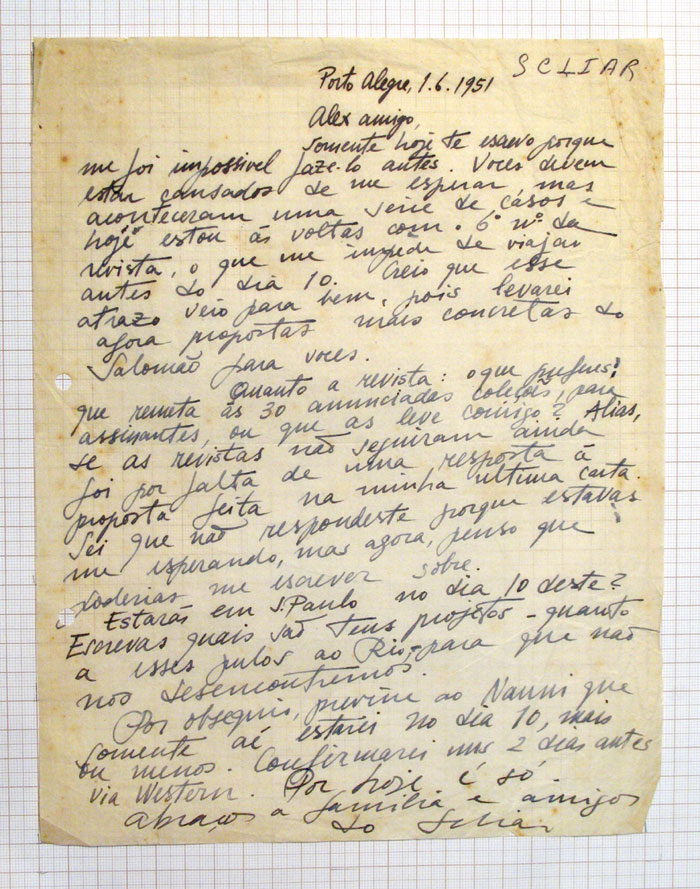 SCLIAR
Porto Alegre, 1.6.1951
Alex amigo,
somente hoje te escrevo porque
me foi impossivel faze-lo antes. Voces devem
estar cansados de me esperar, mas
aconteceram uma serie de casos e
hoje estou ás voltas com o 6º nº da
revista, o que me impede de viajar
antes do dia 10. Creio que esse
atrazo veio para bem, pois levarei
agora propostas mais concretas do
Salomão para voces.
Quanto a revista: o que preferes?
que remeta ás 30 anunciadas coleções, para
assinantes, ou que as leve comigo? Alias,
se as revistas não seguiram ainda
foi por falta de uma resposta á
proposta feita na minha ultima carta.
Sei que não respondeste porque estavas
me esperando, mas agora, penso que
poderias me escrever sobre.
Estarás em S. Paulo no dia 10 deste?
Escrevas quais são teus projetos - quanto
a esses pulos ao Rio, - para que não
nos desencontremos.
Por obsequio, previne ao Nanni que
somente aí estarei no dia 10, mais
ou menos. Confirmarei uns 2 dias antes
via Western. Por hoje é só.
Abraços a familia e amigos
do Scliar